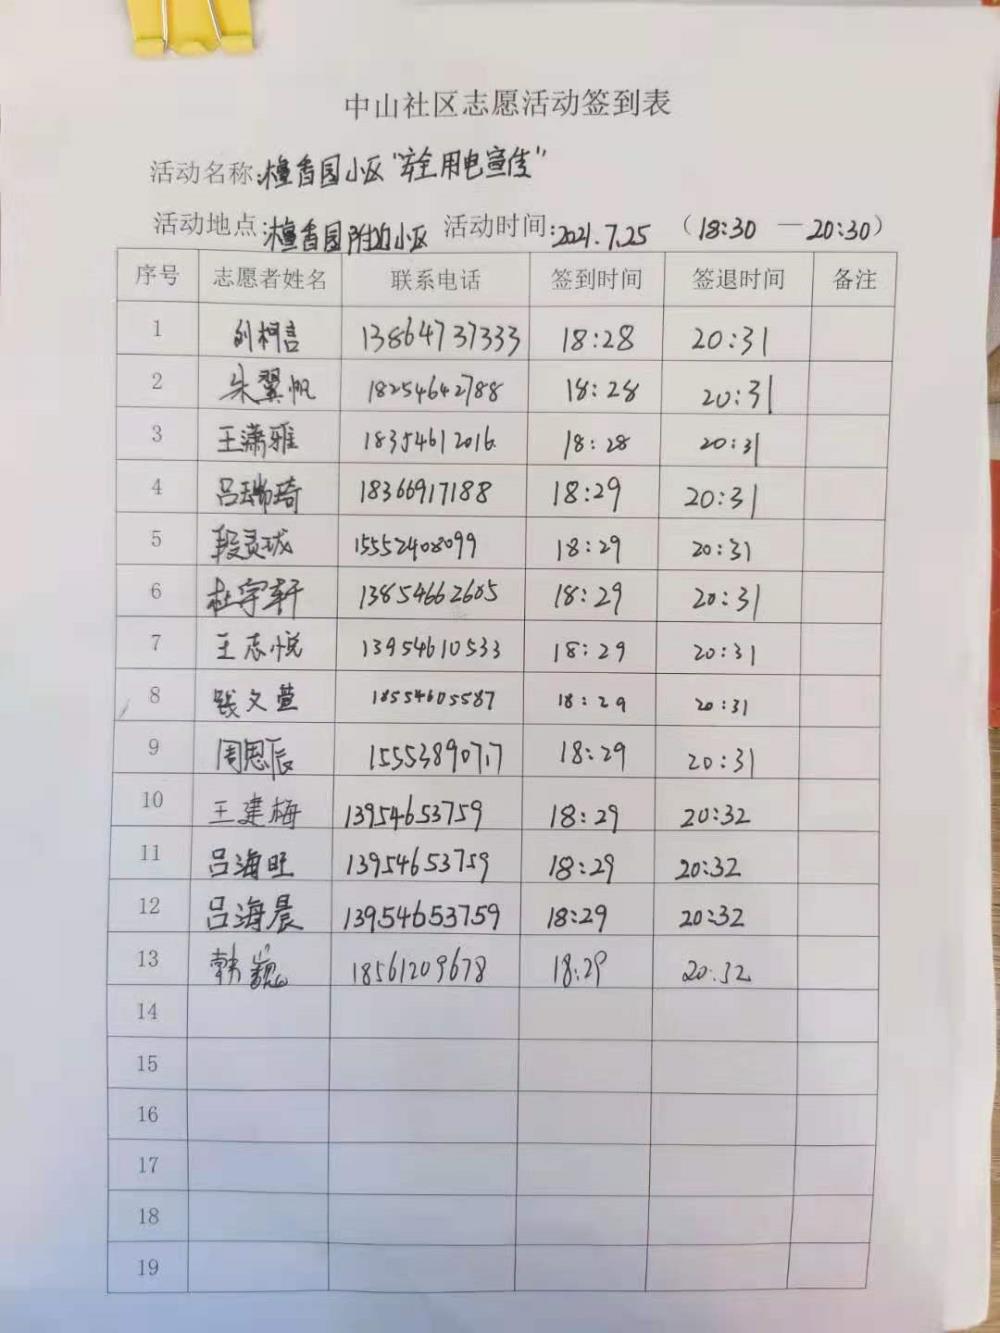 中山社区志愿活动签到表
活动名称:檀香园小区"安全用电宣传"
活动地点:檀香园附近小区 活动时间:2021.7.25 (18:30 — 20:30)
序号 志愿者姓名 联系电话 签到时间 签退时间 备注
1 刘柯言 13864737333 18:28 20:31
2 朱翼帆 18254642788 18:28 20:31
3 王潇雅 18354612016 18:28 20:31
4 吕瑞琦 18366917188 18:29 20:31
5 段灵珑 15552408099 18:29 20:31
6 杜宇轩 13854662605 18:29 20:31
7 王志悦 13954610533 18:29 20:31
8 钱文萱 18554605587 18:29 20:31
9 周恩辰 15553890717 18:29 20:31
10 王建梅 13954653759 18:29 20:32
11 吕海旺 13954653759 18:29 20:32
12 吕海晨 13954653759 18:29 20:32
13 韩巍 18561209678 18:29 20:32
14
15
16
17
18
19